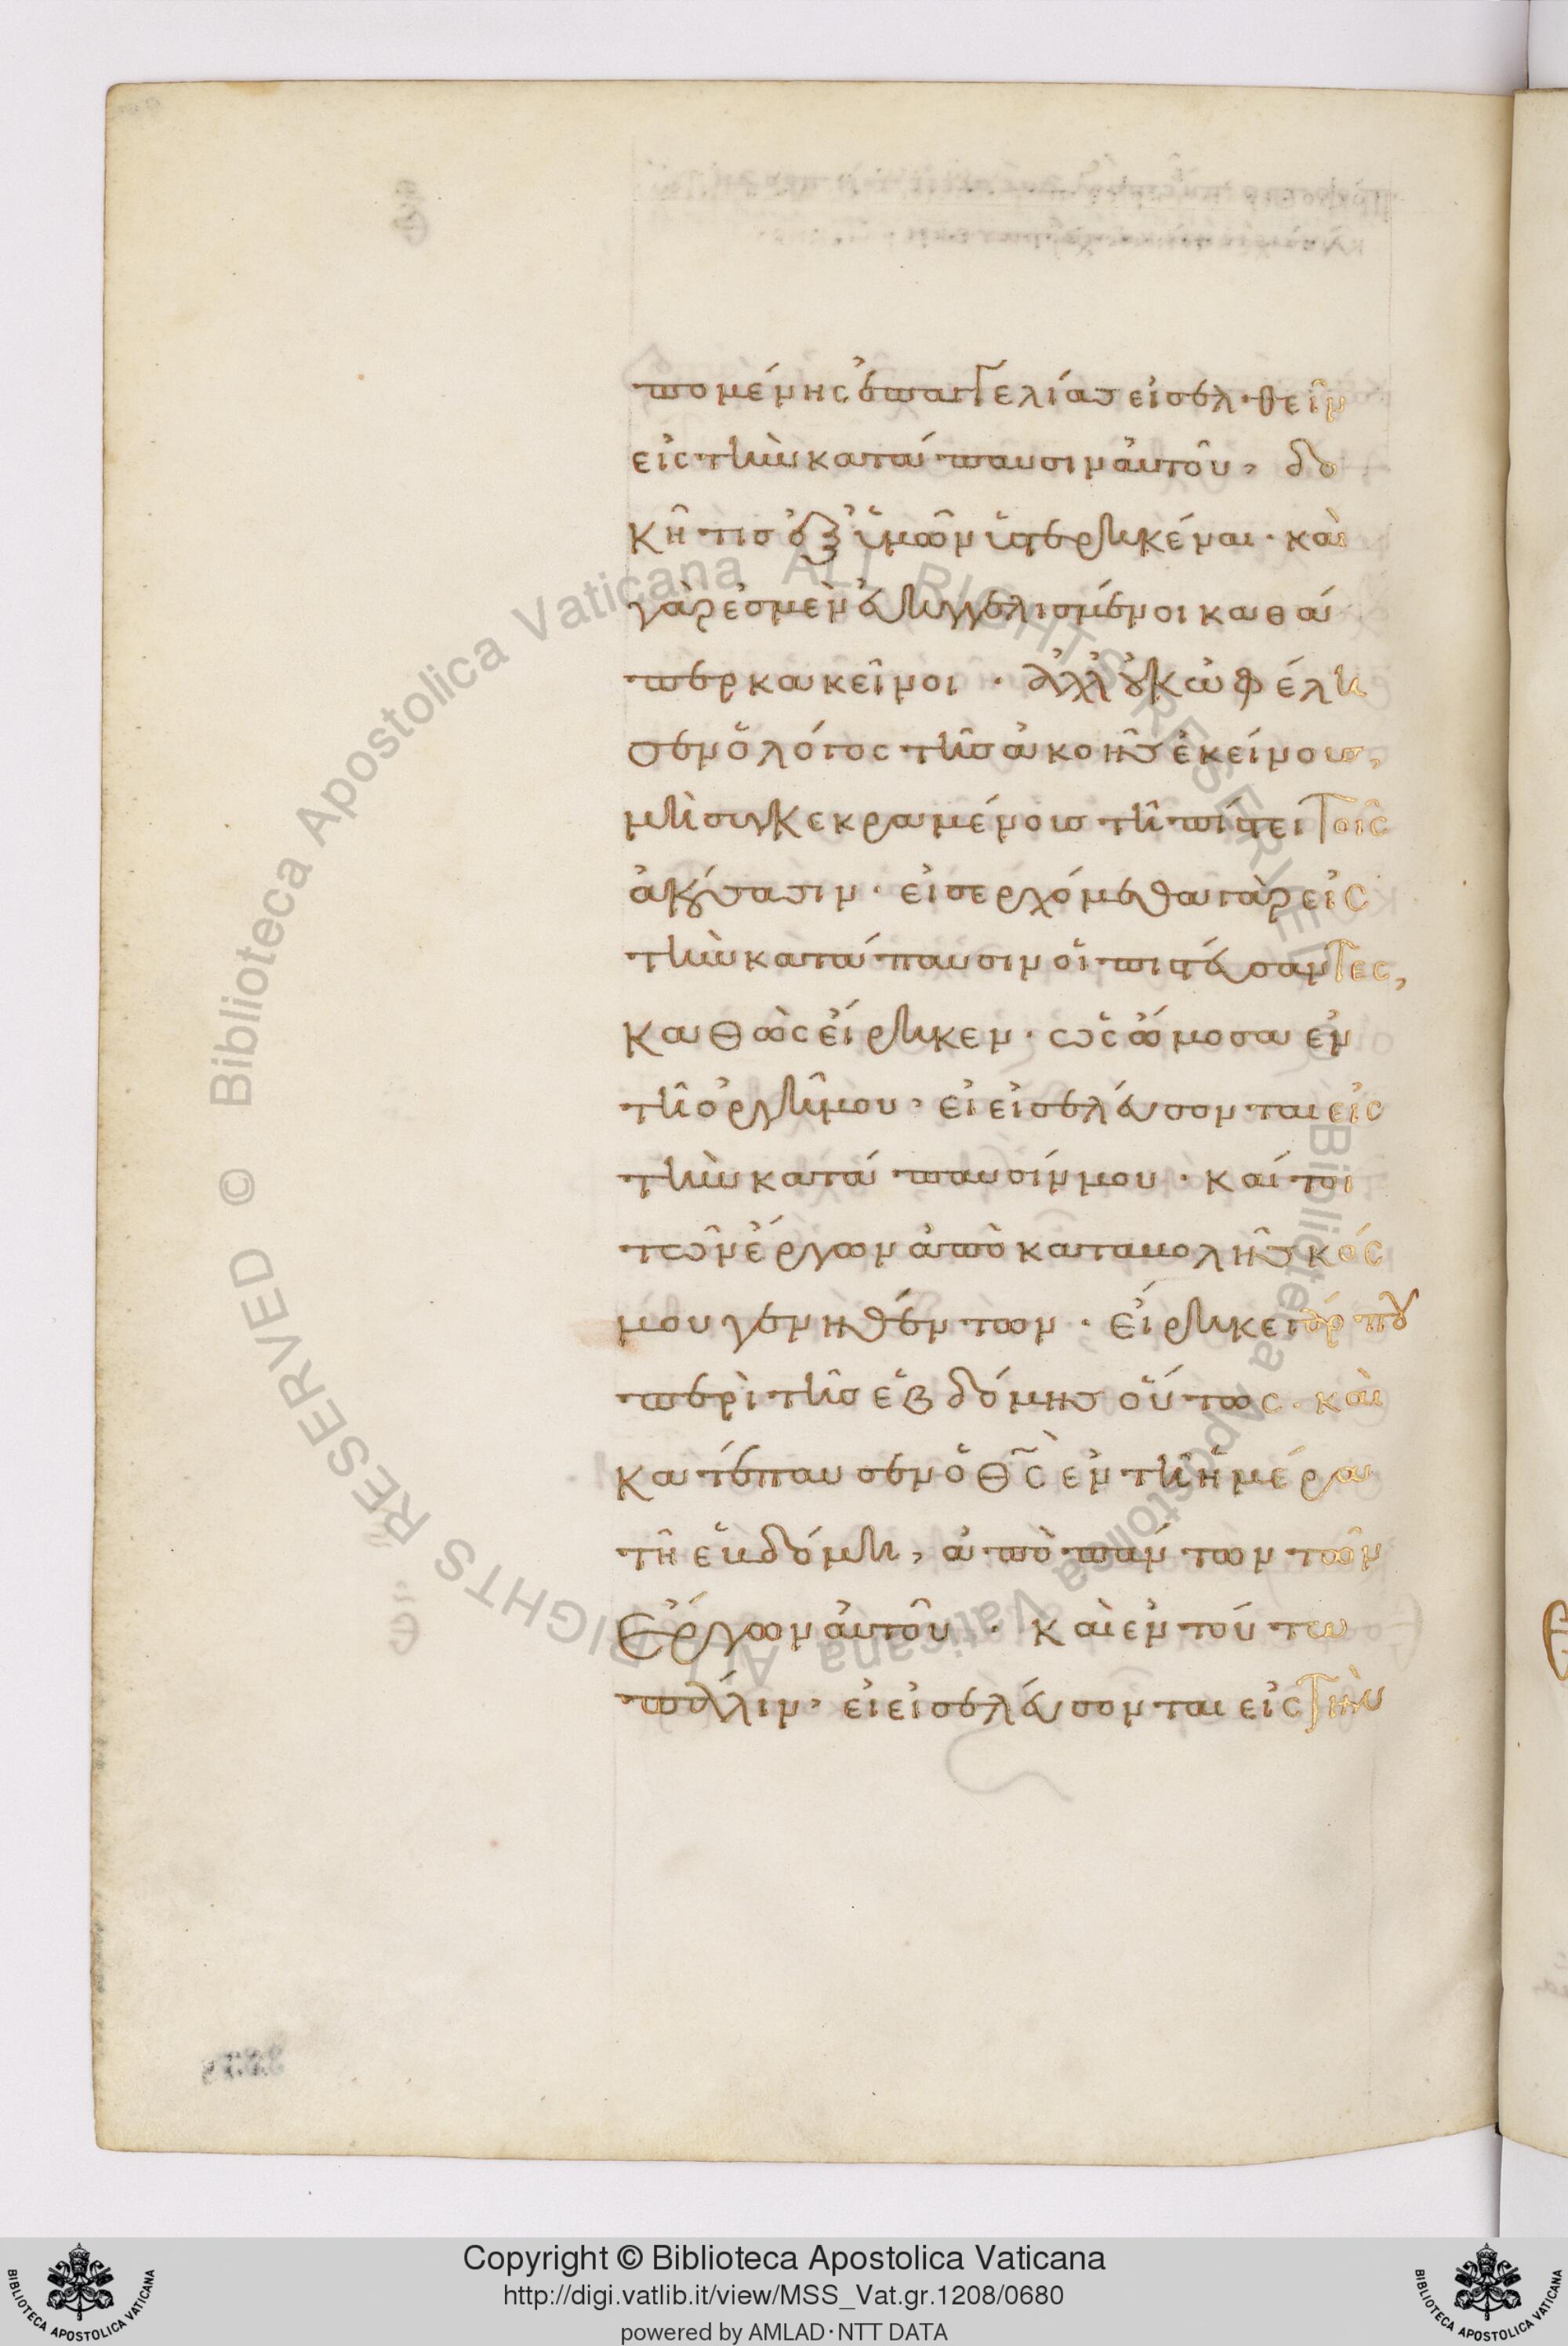 πομένης ἐπαγγελίας εἰσελθεῖν
εἰς τὴν κατάπαυσιν αὐτοῦ, δο
κῆ τις ἐξ ὑμῶν ὑστερηκέναι· καὶ
γὰρ ἐσμὲν εὐηγγελισμένοι καθά
περ κακεῖνοι· ἀλλ' οὐκ ὠφέλη
σεν ὁ λόγος τῆς ἀκοῆς ἐκείνους,
μὴ συγκεκραμένοις τῆ πίστει τοῖς
ἀκούσασιν· εἰσερχόμεθα γὰρ εἰς
τὴν κατάπαυσιν οἱ πιστεύσαντες,
καθὼς εἴρηκεν· ὡς ὤμοσα ἐν
τῆ ὀργῆ μου, εἰ εἰσελεύσονται εἰς
τὴν κατάπαυσίν μου· καί τοι
τῶν ἔργων ἀπὸ καταβολῆς κόσ
μου γενηθέντων· εἴρηκε γάρ που
περὶ τῆς ἑβδόμης οὕτως· καὶ
κατέπαυσεν ὁ θς ἐν τῆ ἡμέρα
τῆ ἑβδόμη, ἀπὸ πάντων τῶν
ἔργων αὐτοῦ· καὶ ἐν τούτω
πάλιν, εἰ εἰσελεύσονται εἰς τὴν
Copyright © Biblioteca Apostolica Vaticana
http://digi.vatlib.it/view/MSS_Vat.gr.1208/0680
powered by AMLAD·NTT DATA
BIBLIOTECA APOSTOLICA VATICANA
BIBLIOTECA APOSTOLICA VATICANA
Biblioteca Apostolica Vaticana ALL RIGHTS RESERVED
Biblioteca Apostolica Vaticana ALL RIGHTS RESERVED ©